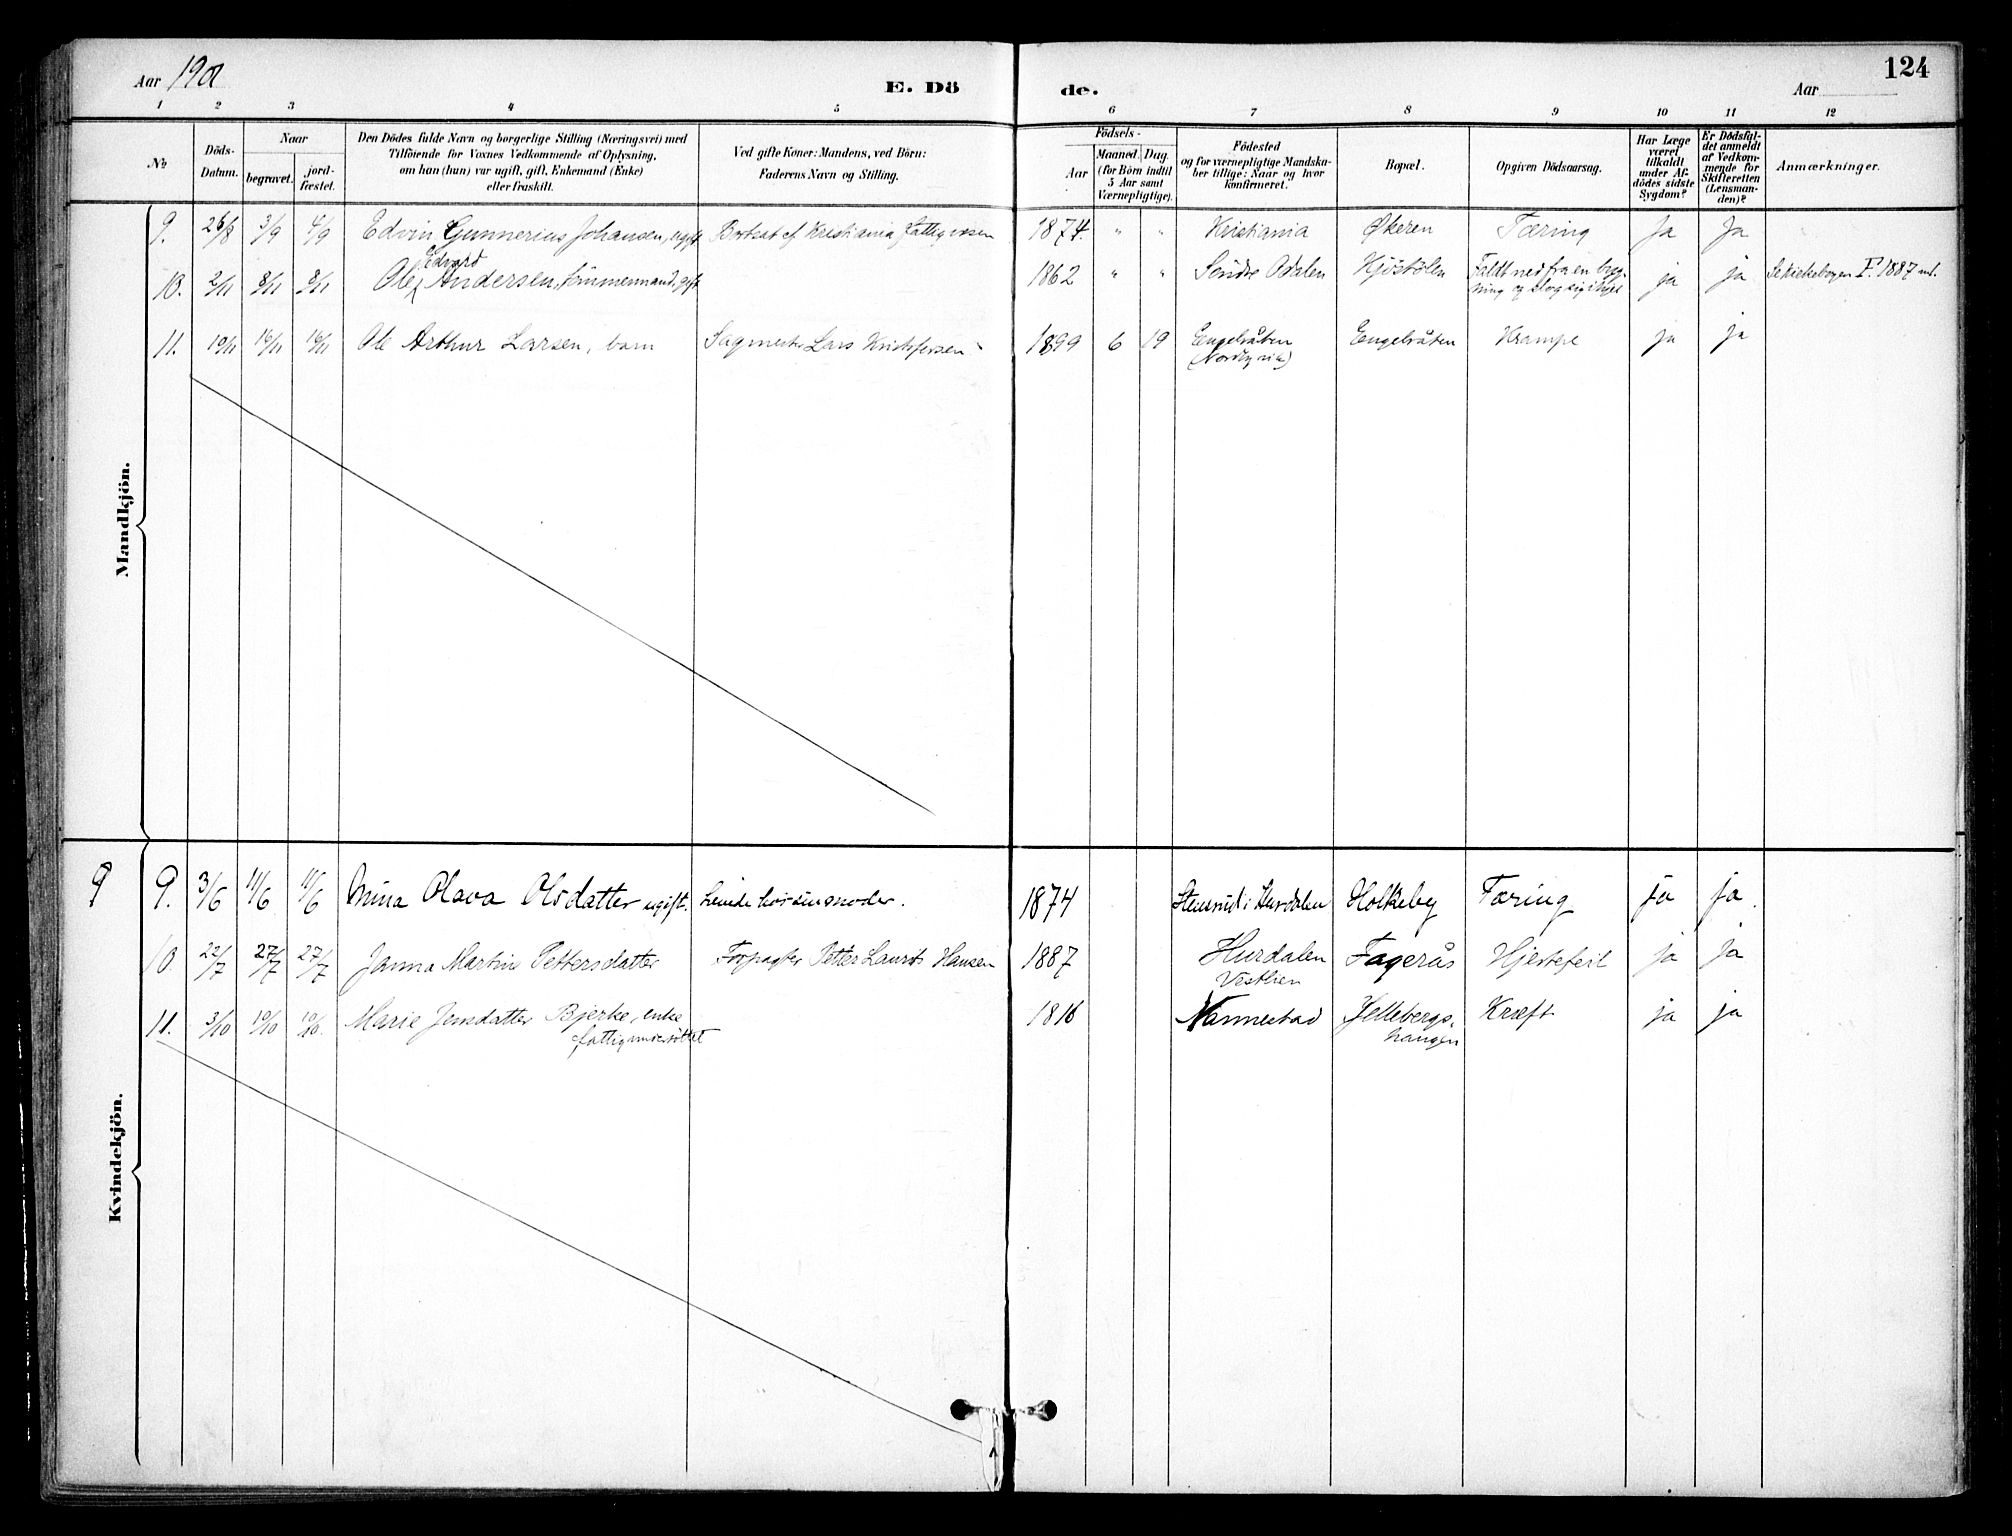 124
Aar 1901
E. Döde.
Aar
1 2 3 4 5 6 7 8 9 10 11 12
No
Döds-Datum.
Naar
begravet.
jordfæstet.
Den Dödes fulde Navn og borgerlige Stilling (Næringsvei) med
Tilföiende for Voxnes Vedkommende af Oplysning,
om han (hun) var ugift, gift, Enkemand (Enke)
eller fraskilt.
Ved gifte Koner: Mandens, ved Börn:
Faderens Navn og Stilling.
Födsels-
Aar
Maaned. Dag.
(for Börn indtil
5 Aar samt
Værnepligtige).
Födested
og for værnepligtige Mandska-
ber tillige: Naar og hvor
konfirmeret.
Bopæl.
Opgiven Dödsaarsag.
Har Læge
været
tilkaldt
under Af-
dödes sidste
Sygdom?
Er Dödsfal-
det anmeldt
af Vedkom-
mende for
Skifteretten
(Lensman-
den)?
Anmærkninger.
Mandkjön.
9. 26/8 3/9 4/9 Edvin Gunnerius Johansen, ugift Bortsat af Kristiania fattigvæsen 1874. " " Kristiania Økeren Tæring Ja Ja
Edvard
10. 2/11 8/11 8/11 Ole Andersen, tömmermand, gift 1862 " " Söndre Odalen Kjöstölen Faldt ned fra en byg-
ning og slog sig ihjel ja ja Se kirkebogen F. 1887
11. 10/11 16/11 16/11 Ole Arthur Larsen, barn Sagmester Lars Kristofersen 1899 6 19 Engelsåten
Engelsåten Krampe ja ja
Kvindekjön.
9 9. 3/6 11/6 11/6 Mina Olava Olsdatter ugift. hos sin moder. 1874 Stensrud i Hurdalen Holkeby Tæring ja ja.
10. 22/7 27/7 27/7 Janna Martine Pettersdatter Forpagter Petter Laurits Hansen 1887 Hurdalen
Vestlien
Fagerås Hjertefeil ja ja
11. 3/10 10/10 10/10. Marie Jensdatter Bjerke, enke
fattigunderstöttet 1816 Nannestad Hellebergs-
haugen Kræft ja ja